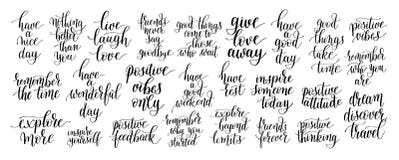 have
a
nice
day
nothing
better
than
you
live
laugh
love
friends
never
say
goodbye
good things
come to
those
who wait
give
love
away
have
a
good
day
good
things
take
time
positive
vibes
remember
the time
have
a
wonderful
day
positive
vibes
only
have
a
good
weekend
have
rest
inspire
someone
today
positive
attitude
remember
who you
are
explore
more
inspire
yourself
positive
feedback
remember
why you
started
explore
beyond
limits
friends
forever
positive
thinking
dream
discover
travel